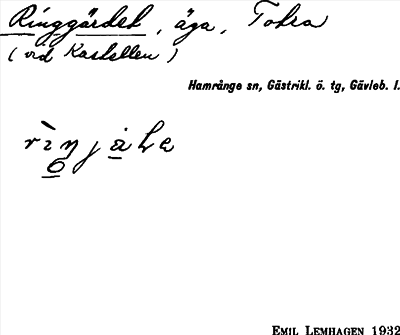 Ringgärdet, äga, Tobra
(vid Kastellen)
Hamrånge sn, Gästrikl. ö. tg, Gävleb. l.
EMIL LEMHAGEN 1932